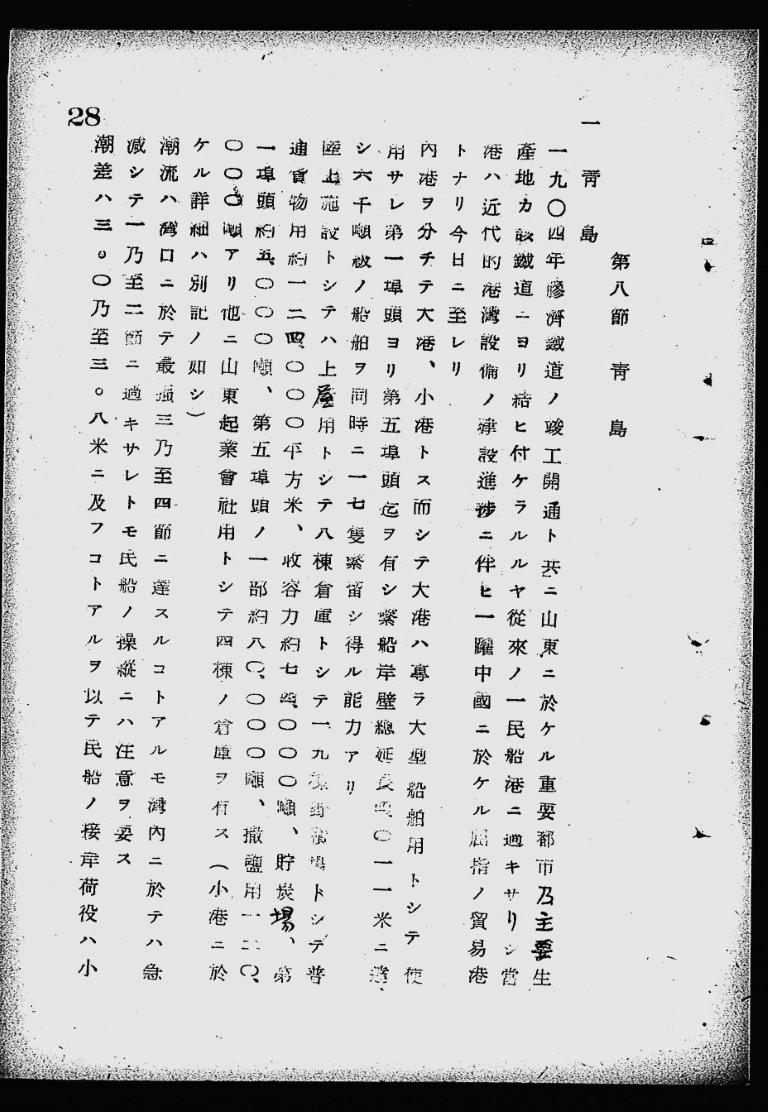 第八節　靑島
一　靑島
一九〇四年膠濟鐵道ノ竣工開通ト共ニ山東ニ於ケル重要都市及主要生
產地カ該鐵道ニヨリ結ヒ付ケラルルヤ從來ノ一民船港ニ過キサリシ當
港ハ近代的港灣設備ノ建設進涉ニ伴ヒ一躍中國ニ於ケル屈指ノ貿易港
トナリ今日ニ至レリ
內港ヲ分チテ大港、小港トス而シテ大港ハ專ラ大型船舶用トシテ使
用サレ第一埠頭ヨリ第五埠頭迄ヲ有シ繫船岸壁總延長四〇一一米ニ達
シ六千噸級ノ船舶ヲ同時ニ一七隻繫留シ得ル能力アリ
陸上施設トシテハ上屋用トシテ八棟倉庫トシテ一九棟野積場トシテ普
通貨物用約一二四〇〇〇平方米、收容力約七四、〇〇〇噸、貯炭場、第
一埠頭約五、〇〇〇噸、第五埠頭ノ一部約八〇、〇〇〇噸、撒鹽用一二〇、
〇〇〇噸アリ他ニ山東起業會社用トシテ四棟ノ倉庫ヲ有ス（小港ニ於
ケル詳細ハ別記ノ如シ）
潮流ハ灣口ニ於テ最强三乃至四節ニ達スルコトアルモ灣內ニ於テハ急
減シテ一乃至二節ニ過キサレトモ民船ノ操縱ニハ注意ヲ要ス
潮差ハ三。〇乃至三。八米ニ及フコトアルヲ以テ民船ノ接岸荷役ハ小
28